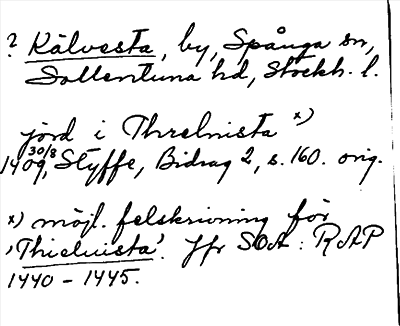 ? Kälvesta, by, Spånga sn,
Sollentuna hd, Stockh. l.
jord i Threlnista x)
30/8
1409, Styffe, Bidrag 2, s. 160. orig.
x) möjl. felskrivning för
'Thieluista'. Jfr SOA: RAP
1440 – 1445.